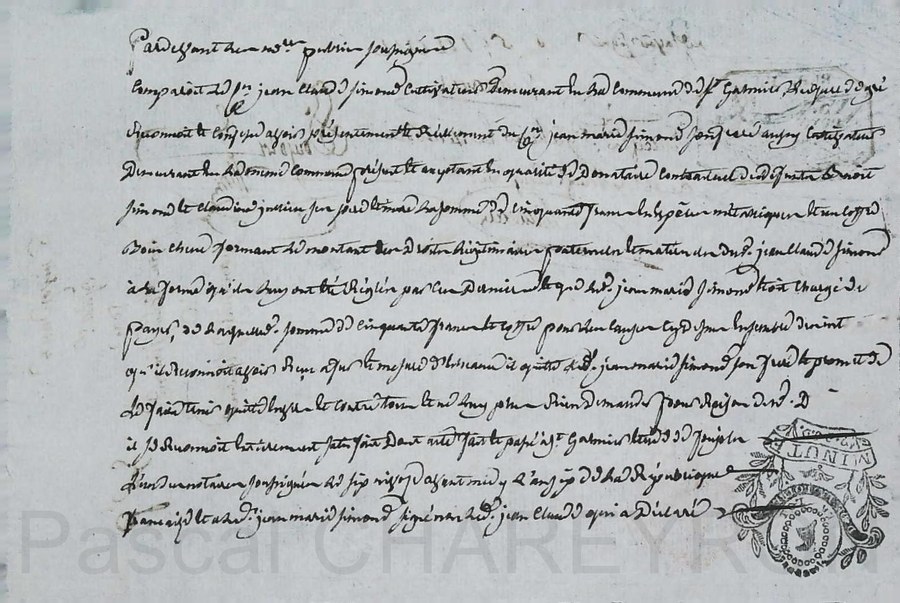 Pardevant les nores publics soussignés
Comparoit le sr jean Claude simond Cultivateur demeurant en la Commune de st Galmier lequel de gré
Reconnoit et Confesse avoir présentement et Réellement du sr jean marie simond son frere aussy Cultivateur
Demeurant en la même Commune présent et acceptant en qualité de Donataire Contractuel de deffunts Benoit
simond et Claudine jurieu ses pere et mere la somme de Cinquante francs en espèces métalliques et un Coffre
Bois Chene formant le montant des Droits légitimaires paternels et maternels dud. jean Claude simond
à la forme qu'ils luy ont été Réglés par ces Derniers et que led. jean marie simond étoit Chargé de
payer, de laquelle somme de Cinquante francs et Coffre pour les Causes Cy dessus
qu'il Reconnoit avoir Reçu il quitte led. jean marie simond son frere et promet de
le faire tenir quitte envers et contre tous et ne luy plus Rien Demander pour Raison de
il se Reconnoit entierement satisfait Dont acte fait et passé à st Galmier étude de
L'un des notaires soussignés le six nivose avant midy L'an de la République
française et a led. jean marie simond signé non led. jean Claude qui a Déclaré
MINUTE
Pascal CHAREYRON